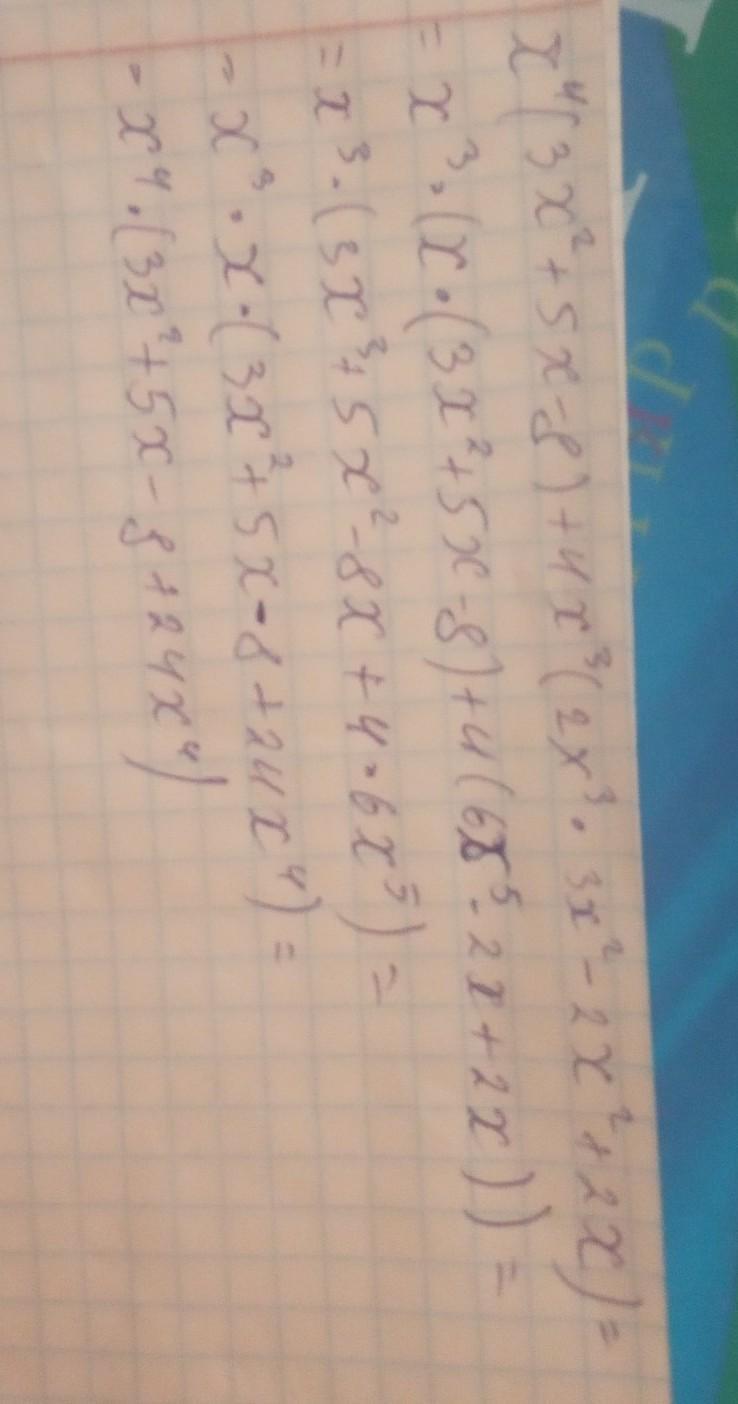 x⁴(3x²+5x-8)+4x³(2x³·3x²-2x²+2x)=
=x³·(x·(3x²+5x-8)+4(6x⁵-2x+2x))=
=x³·(3x³+5x²-8x+4·6x⁵)=
=x³·x·(3x²+5x-8+24x⁴)=
=x⁴·(3x²+5x-8+24x⁴)